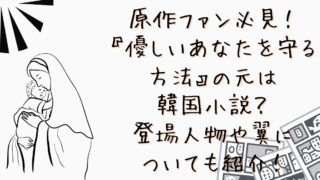 原作ファン必見！
『優しいあなたを守る
方法』の元は
韓国小説？
登場人物や翼に
ついても紹介！